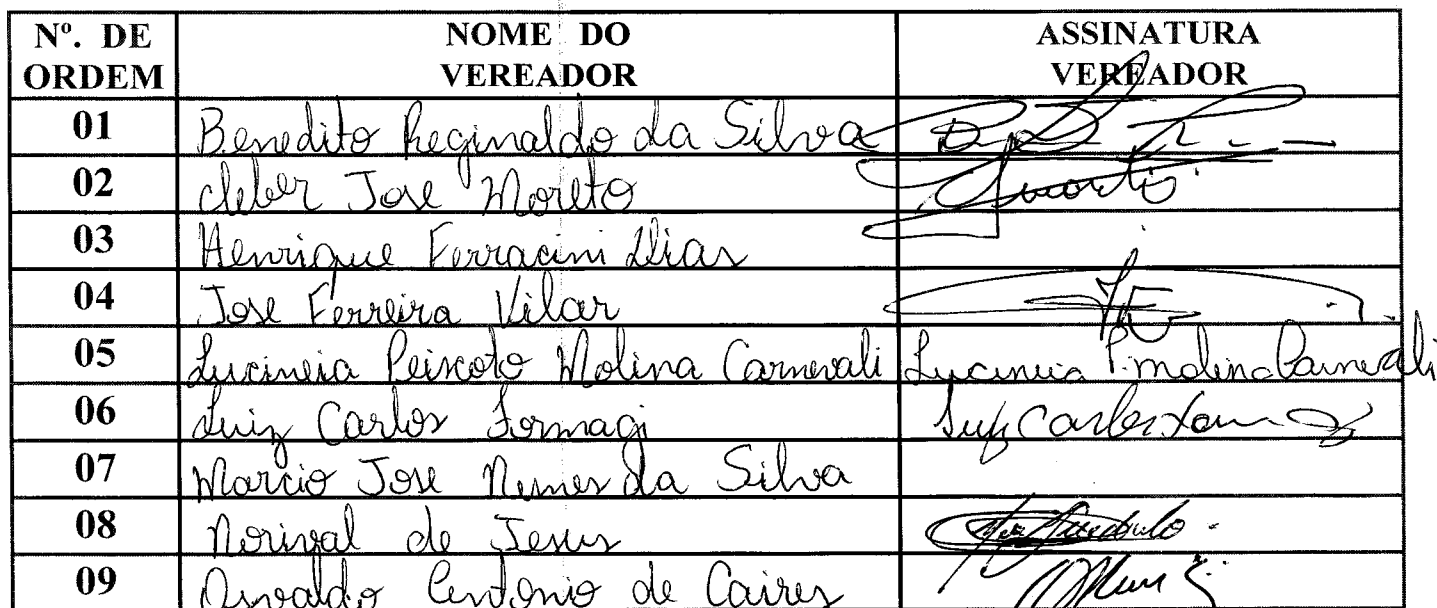 Nº. DE ORDEM NOME DO VEREADOR ASSINATURA VEREADOR
01 Benedito Reginaldo da Silva
02 Cleber Jose Moreto
03 Henrique Ferracini Dias
04 Jose Ferreira Vilar
05 Lucineia Peixoto Molina Carnevali Lucineia P. Molina Carnevali
06 Luiz Carlos Formagi Luiz Carlos
07 Marcio Jose Nunes da Silva
08 Norival de Jesus
09 Osvaldo Antonio de Caires